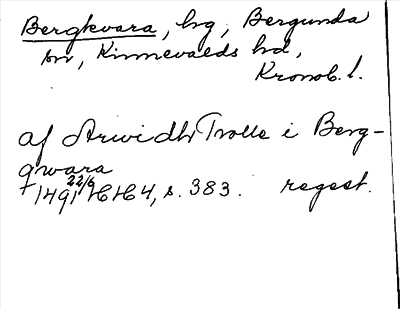 Bergkvara, hg, Bergunda
sn, Kinnevalds hd,
Kronob. l.
af Arwidh Trolle i Berg-
qwara
1491 22/6 HH 4, s. 383. regest.